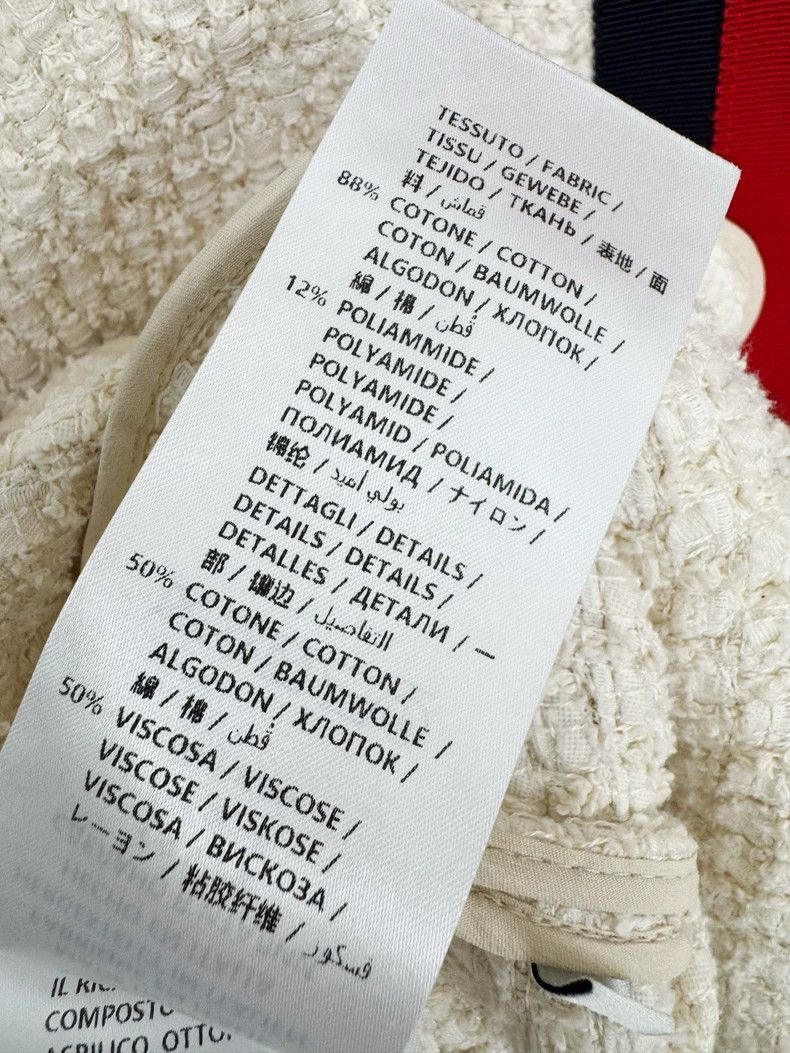 TESSUTO / FABRIC /
TISSU / GEWEBE /
TEJIDO / ТКАНЬ / 表地 / 面
料 / قماش
88% COTONE / COTTON /
COTON / BAUMWOLLE /
ALGODON / ХЛОПОК /
綿 / 棉 / قطن
12% POLIAMMIDE /
POLYAMIDE /
POLYAMIDE /
POLYAMID / POLIAMIDA /
ПОЛИАМИД / ナイロン /
锦纶 / بولي اميد
DETTAGLI / DETAILS /
DETAILS / DETAILS /
DETALLES / ДЕТАЛИ / 一
部 / 镶边 / التفاصيل
50% COTONE / COTTON /
COTON / BAUMWOLLE /
ALGODON / ХЛОПОК /
綿 / 棉 / قطن
50% VISCOSA / VISCOSE /
VISCOSE / VISKOSE /
VISCOSA / ВИСКОЗА /
レーヨン / 粘胶纤维 / فسكوز
HECHO
IL